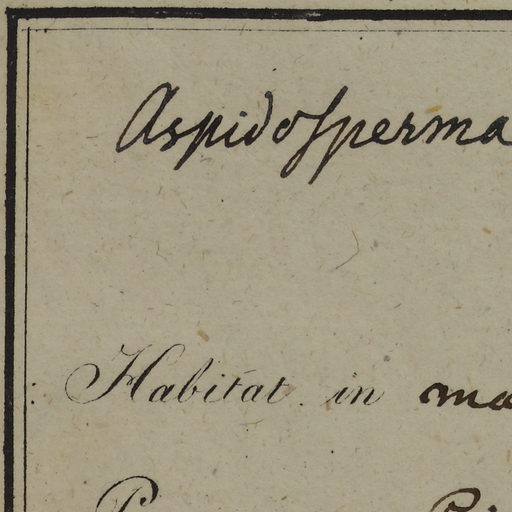 Aspidosperma
Habitat in